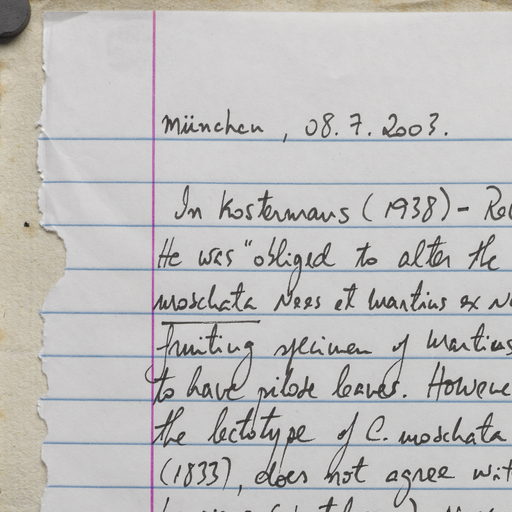 München, 08.7.2003.
In Kostermans (1938) -
He was "obliged to alter the
moschata Nees et Martius ex
fruiting specimen of Martius
to have pilose leaves. Howeve
the lectotype of C. moschata
(1833), does not agree wit